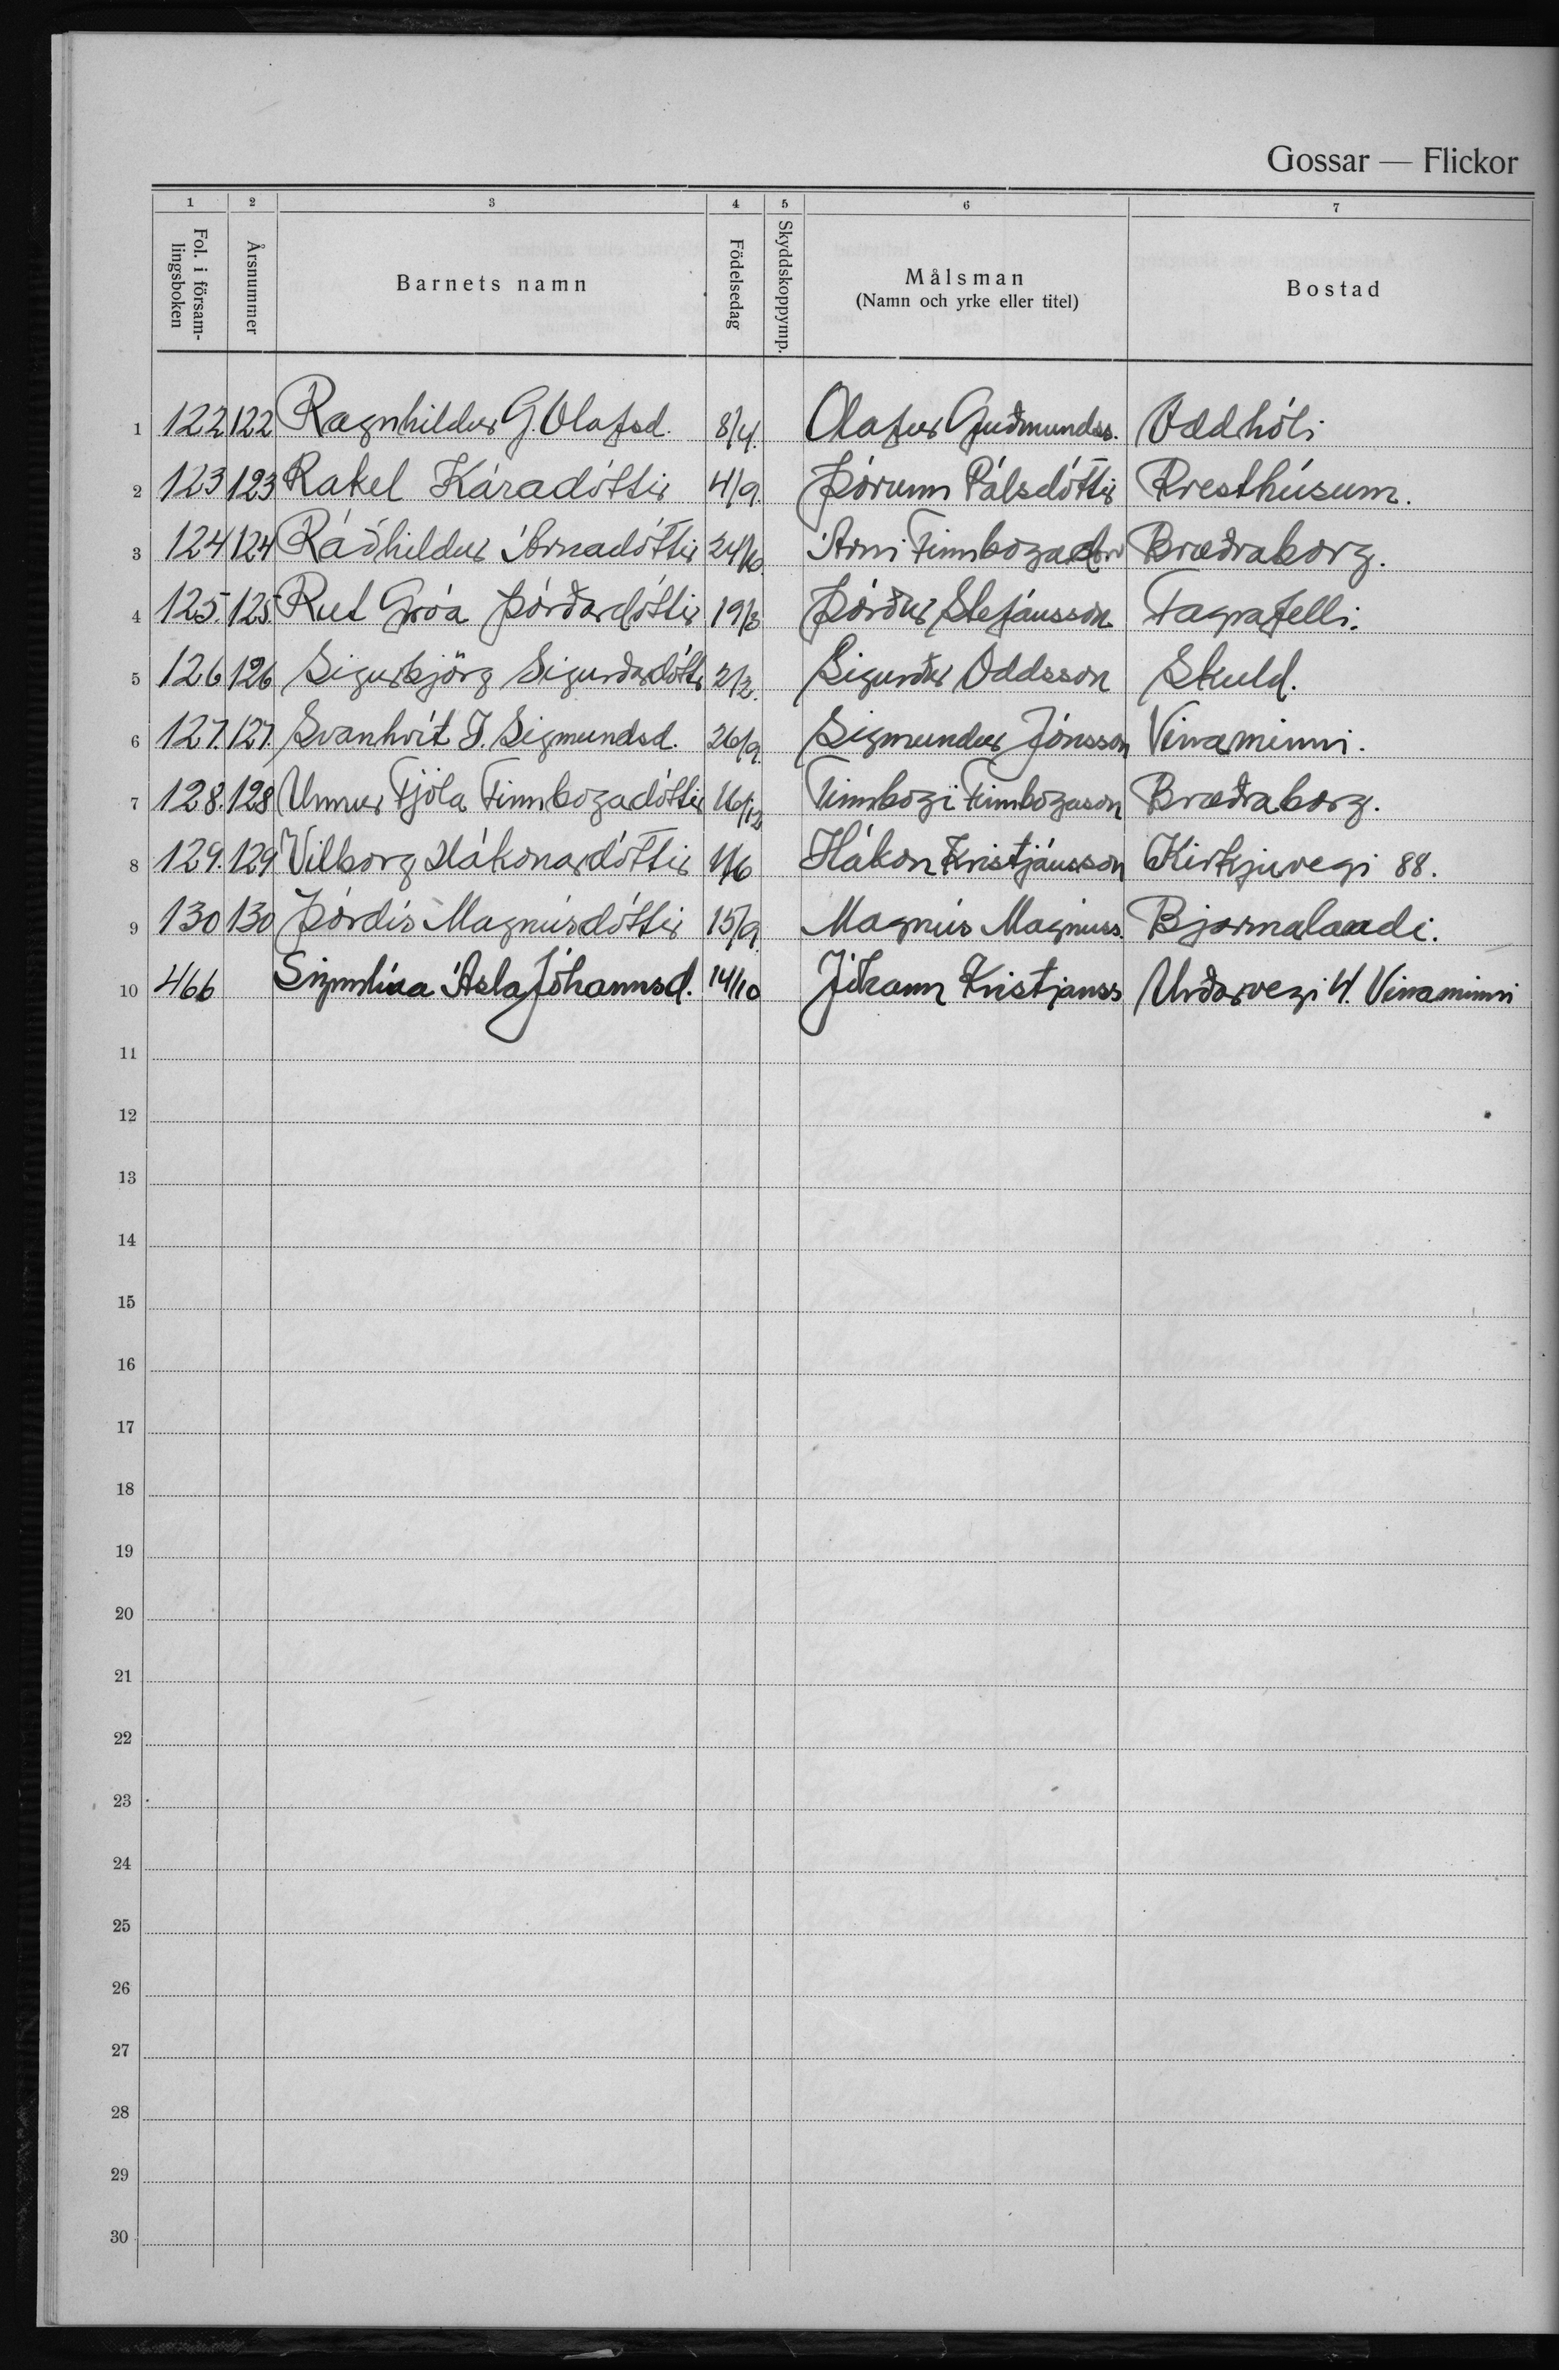 Gossar — Flickor
1 2 3 4 5 6 7
Fol. i församlingsboken | Årsnummer | Barnets namn | Födelsedag | Skyddskoppymp. | Målsman (Namn och yrke eller titel) | Bostad
1 122 122 Ragnhildur G. Olafsd. 8/4. Olafur Guðmundss. Oddhóli
2 123 123 Rakel Káradóttir 4/9. Þórunn Pálsdóttir Presthúsum.
3 124 124 Ráðhildur Árnadóttir 24/10. Árni Finnbogason Bræðraborg.
4 125. 125. Rut Gróa Þórðardóttir 19/8 Þórður Stefánsson Fagrafelli.
5 126 126 Sigurbjörg Sigurðardóttir 2/2. Sigurður Oddsson Skuld.
6 127. 127. Svanhvít I. Sigmundsd. 26/9. Sigmundur Jónsson Vinaminni.
7 128. 128 Unnur Fjóla Finnbogadóttir 16/12 Finnbogi Finnbogason Bræðraborg.
8 129. 129 Vilborg Hákonardóttir 1/6 Hákon Kristjánsson Kirkjuvegi 88.
9 130 130 Þórdís Magnúsdóttir 15/9. Magnús Magnúss. Bjarmalandi.
10 466 Ásta Jóhannsd. 14/10 Jóhann Kristjánss Urðarvegi 4. Vinaminni
11
12
13
14
15
16
17
18
19
20
21
22
23
24
25
26
27
28
29
30